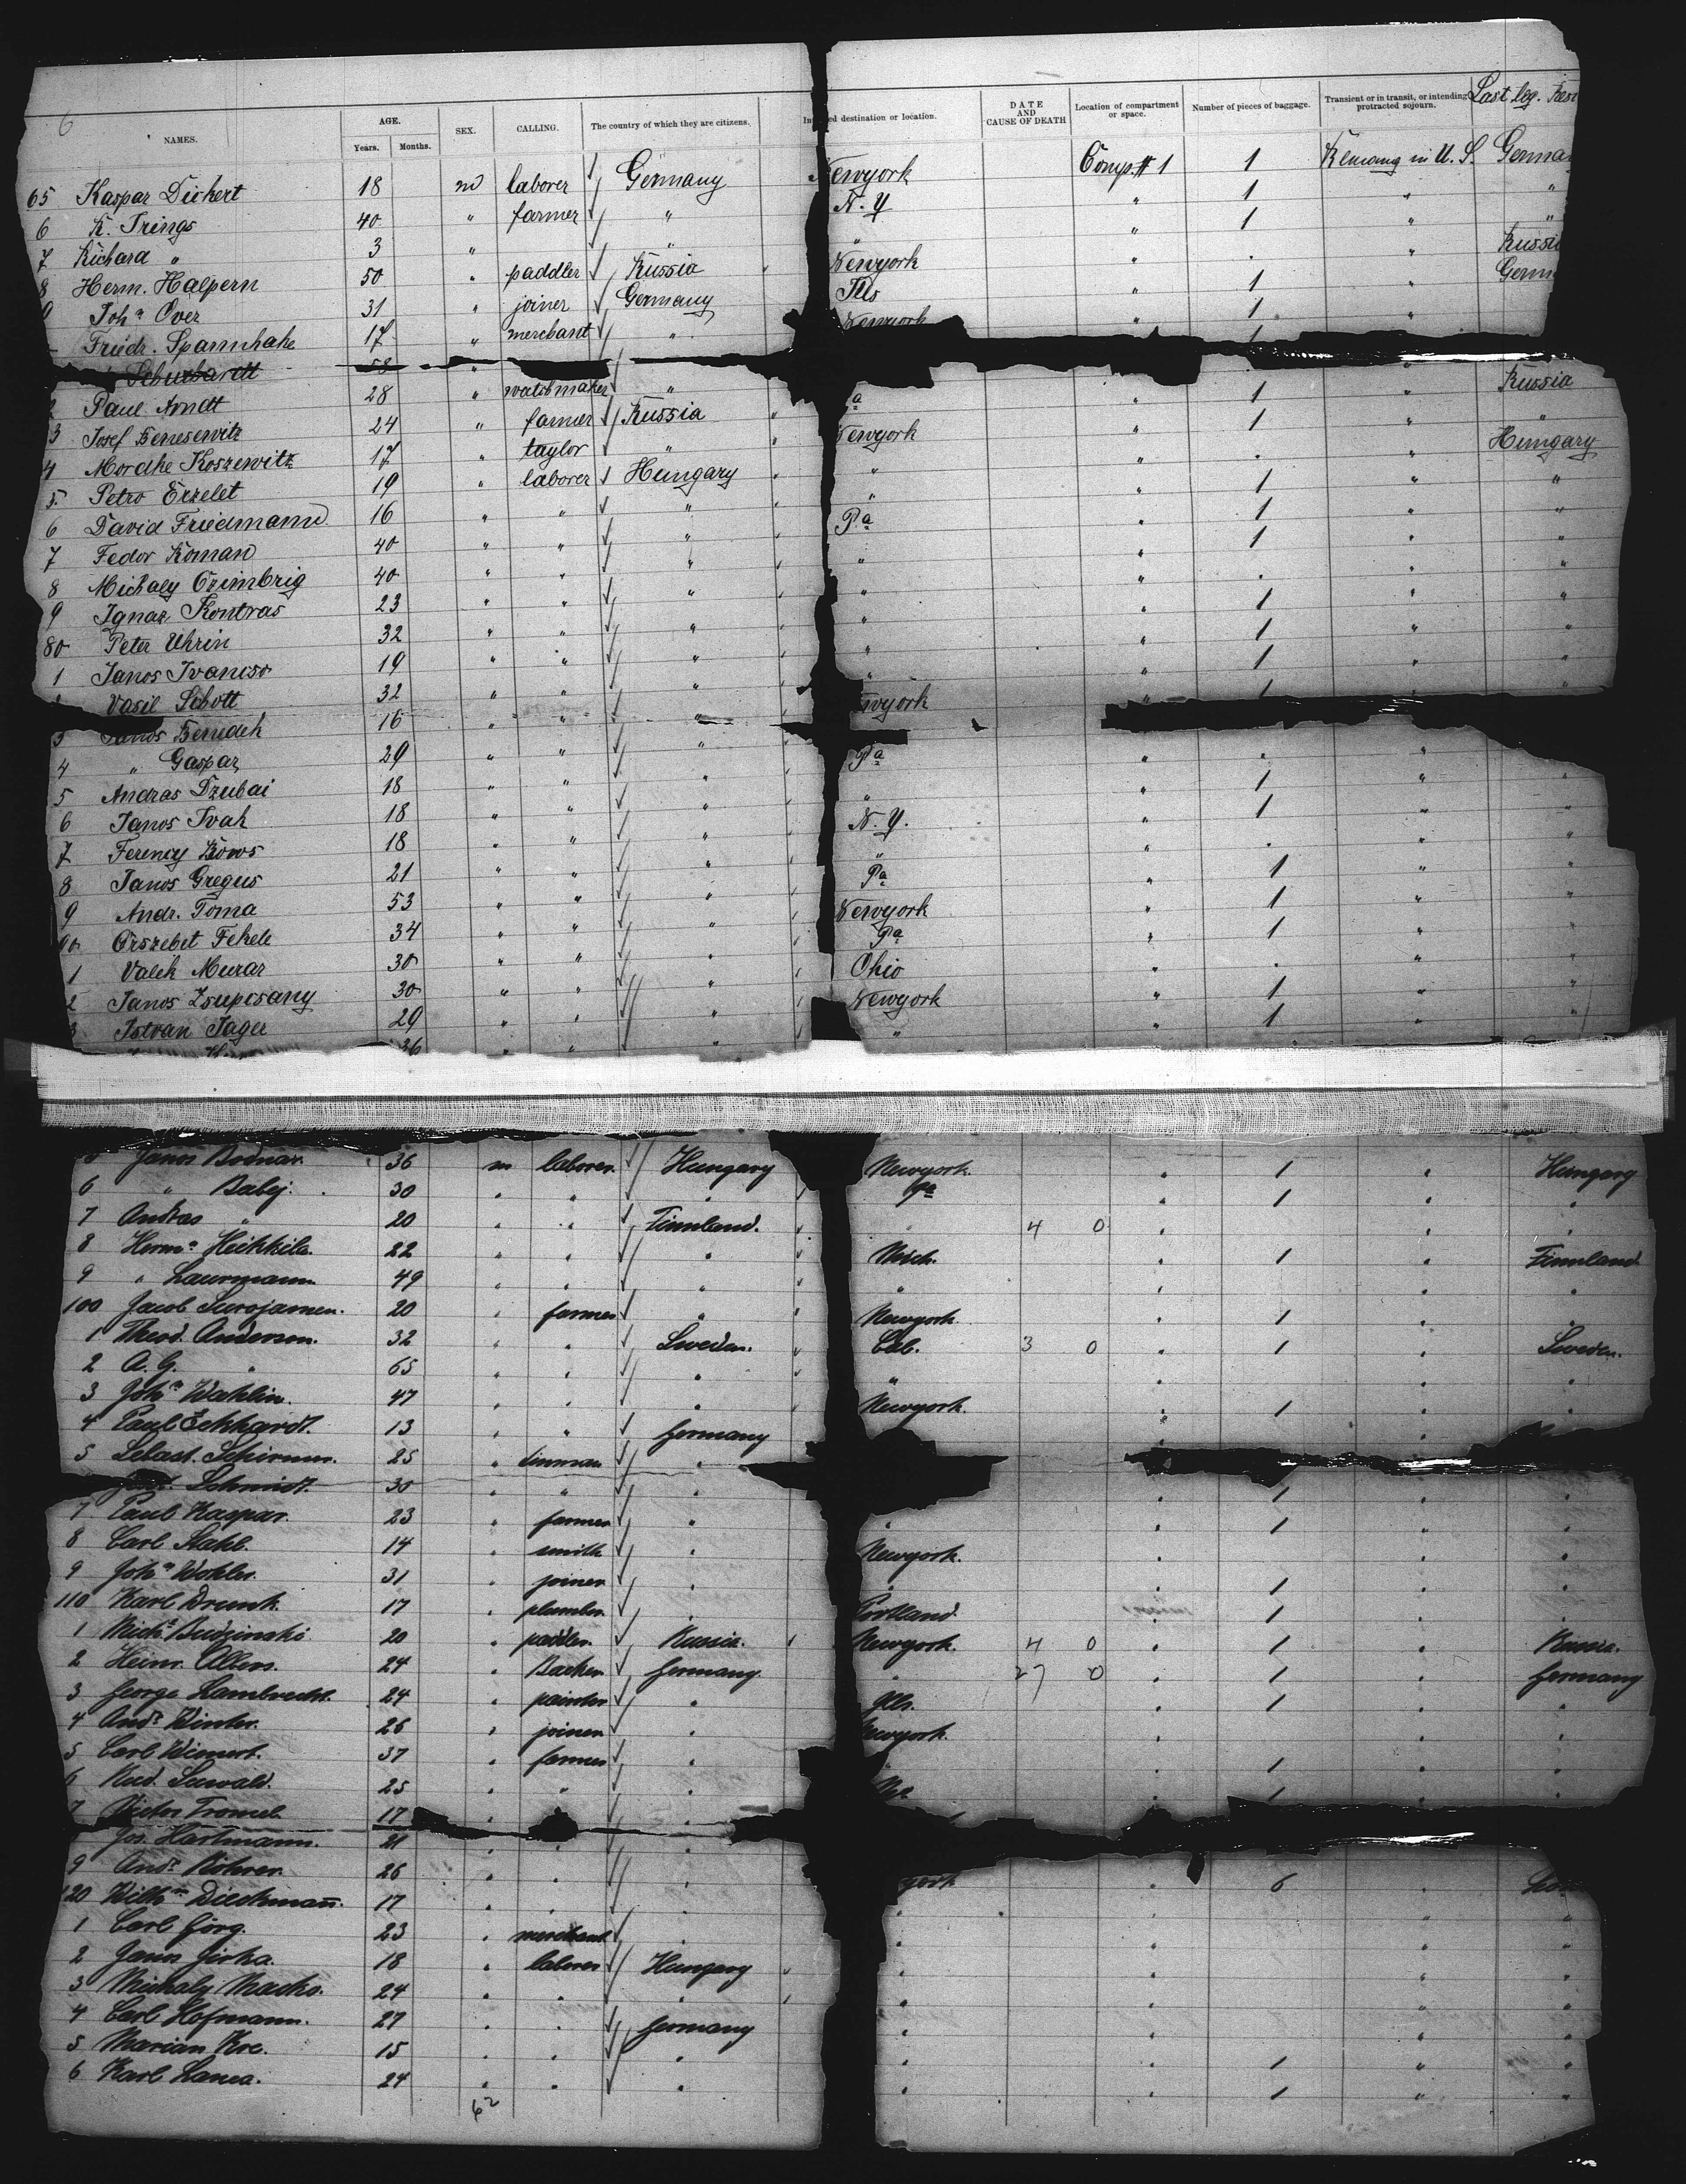 6
NAMES. AGE. Years. Months. SEX. CALLING. The country of which they are citizens. destination or location. DATE AND CAUSE OF DEATH Location of compartment or space. Number of pieces of baggage. Transient or in transit, or intending protracted sojourn. Last leg.
65 Kaspar Dickert 18 m laborer Germany Newyork Comp. # 1 1 in U. S.
6 K. Trings 40 " farmer " N. Y " 1 " "
7 Richard " 3 " " " " 1 " "
8 Herm. Halpern 50 " paddler Russia Newyork " . "
Joh.n Over 31 " joiner Germany Ills " 1 "
Friedr. Spannhake 17 " merchant " Newyork " 1 "
58
2 Paul Arndt 28 " watchmaker " " 1 "
3 Josef 24 " farmer Russia " Newyork " 1 " Russia
4 Mordke Koszewitz 17 " taylor " " " " . " "
5 Petro Erzelet 19 " laborer Hungary " " " 1 " Hungary
6 David Friedmann 16 " " " Pa " 1 " "
7 Fedor Roman 40 " " " " " 1 " "
8 Michaly Czimbrig 40 " " " " " . " "
9 Ignaz Kontras 23 " " " " " 1 " "
80 Peter Uhrin 32 " " " " " 1 " "
1 Janos Ivancso 19 " " " " " 1 " "
Vasil Schott 32 " " " " 1
3 Janos 16 " " "
4 " Gaspar 29 " " " Pa " . "
5 Andras Dzubai 18 " " " " " 1 " "
6 Janos Ivah 18 " " " N. Y. " 1 " "
7 Ferency Kows 18 " " " " " . " "
8 Janos Gregus 21 " " " Pa " 1 " "
9 Andr. Toma 53 " " " Newyork " 1 " "
90 Orszebet Fekete 34 " " " Pa " 1 " "
1 Valek Murar 30 " " " Ohio " . " "
2 Janos Zsupcsany 30 " " " Newyork " 1 " "
3 Istvan Jager 29 " " " " " 1 " "
Janos Bodnar. 36 m laborer Hungary Newyork. " 1 " Hungary
6 " Babej. 30 " " " Pa " 1 " "
7 Andras " 20 " " Finnland. " 4 0 " " "
8 Herm.n Heikkila. 22 " " " Mich. " 1 " Finnland
9 " Laurmann 49 " " " " " " "
100 Jacob 20 " farmer " Newyork " 1 " "
1 Theod. Anderson. 32 " " Sweden. Cal. 3 0 " 1 " Sweden.
2 A. G. " 65 " " " " " " "
3 Joh.n Wahlin. 47 " " " Newyork. " 1 "
4 Paul Eckhardt. 13 " " Germany " "
5 Sebast. 25 " tinman "
Schmidt. 30 " " " " 1 " "
7 Paul Kaspar. 23 " farmer " " " 1 " "
8 Carl Stahl. 14 " smith " Newyork. " " "
9 Joh.n Wohler. 31 " joiner " " 1 " "
110 Karl Drunk. 17 " plumber " Portland " 1 " "
1 Mich.l Budzinski 20 " paddler Russia. Newyork. 4 0 " 1 " Russia.
2 Heinr. Albers. 24 " Backer Germany " 27 0 " 1 " Germany
3 George Lambrecht. 24 " painter " Ills. " 1 " "
4 And.s Winter. 26 " joiner " Newyork. " " "
5 Carl 37 " farmer " " " 1 " "
6 Rud. 25 " " " " 1 " "
7 Victor 17 " "
Jos. Hartmann. 21 " " "
9 And.s Röhrer. 26 " " " " 6 "
120 Wilh.m Dieckmann. 17 " " " " " "
1 Carl Görg. 23 " merchant " " " " "
2 Janos Jirka. 18 " laborer Hungary " " " "
3 Michaly Macko. 24 " " " " " " "
4 Carl Hofmann. 27 " " Germany " " " "
5 Marian 15 " " " " " 1 " "
6 Karl 24 " " " " " 1 " "
62